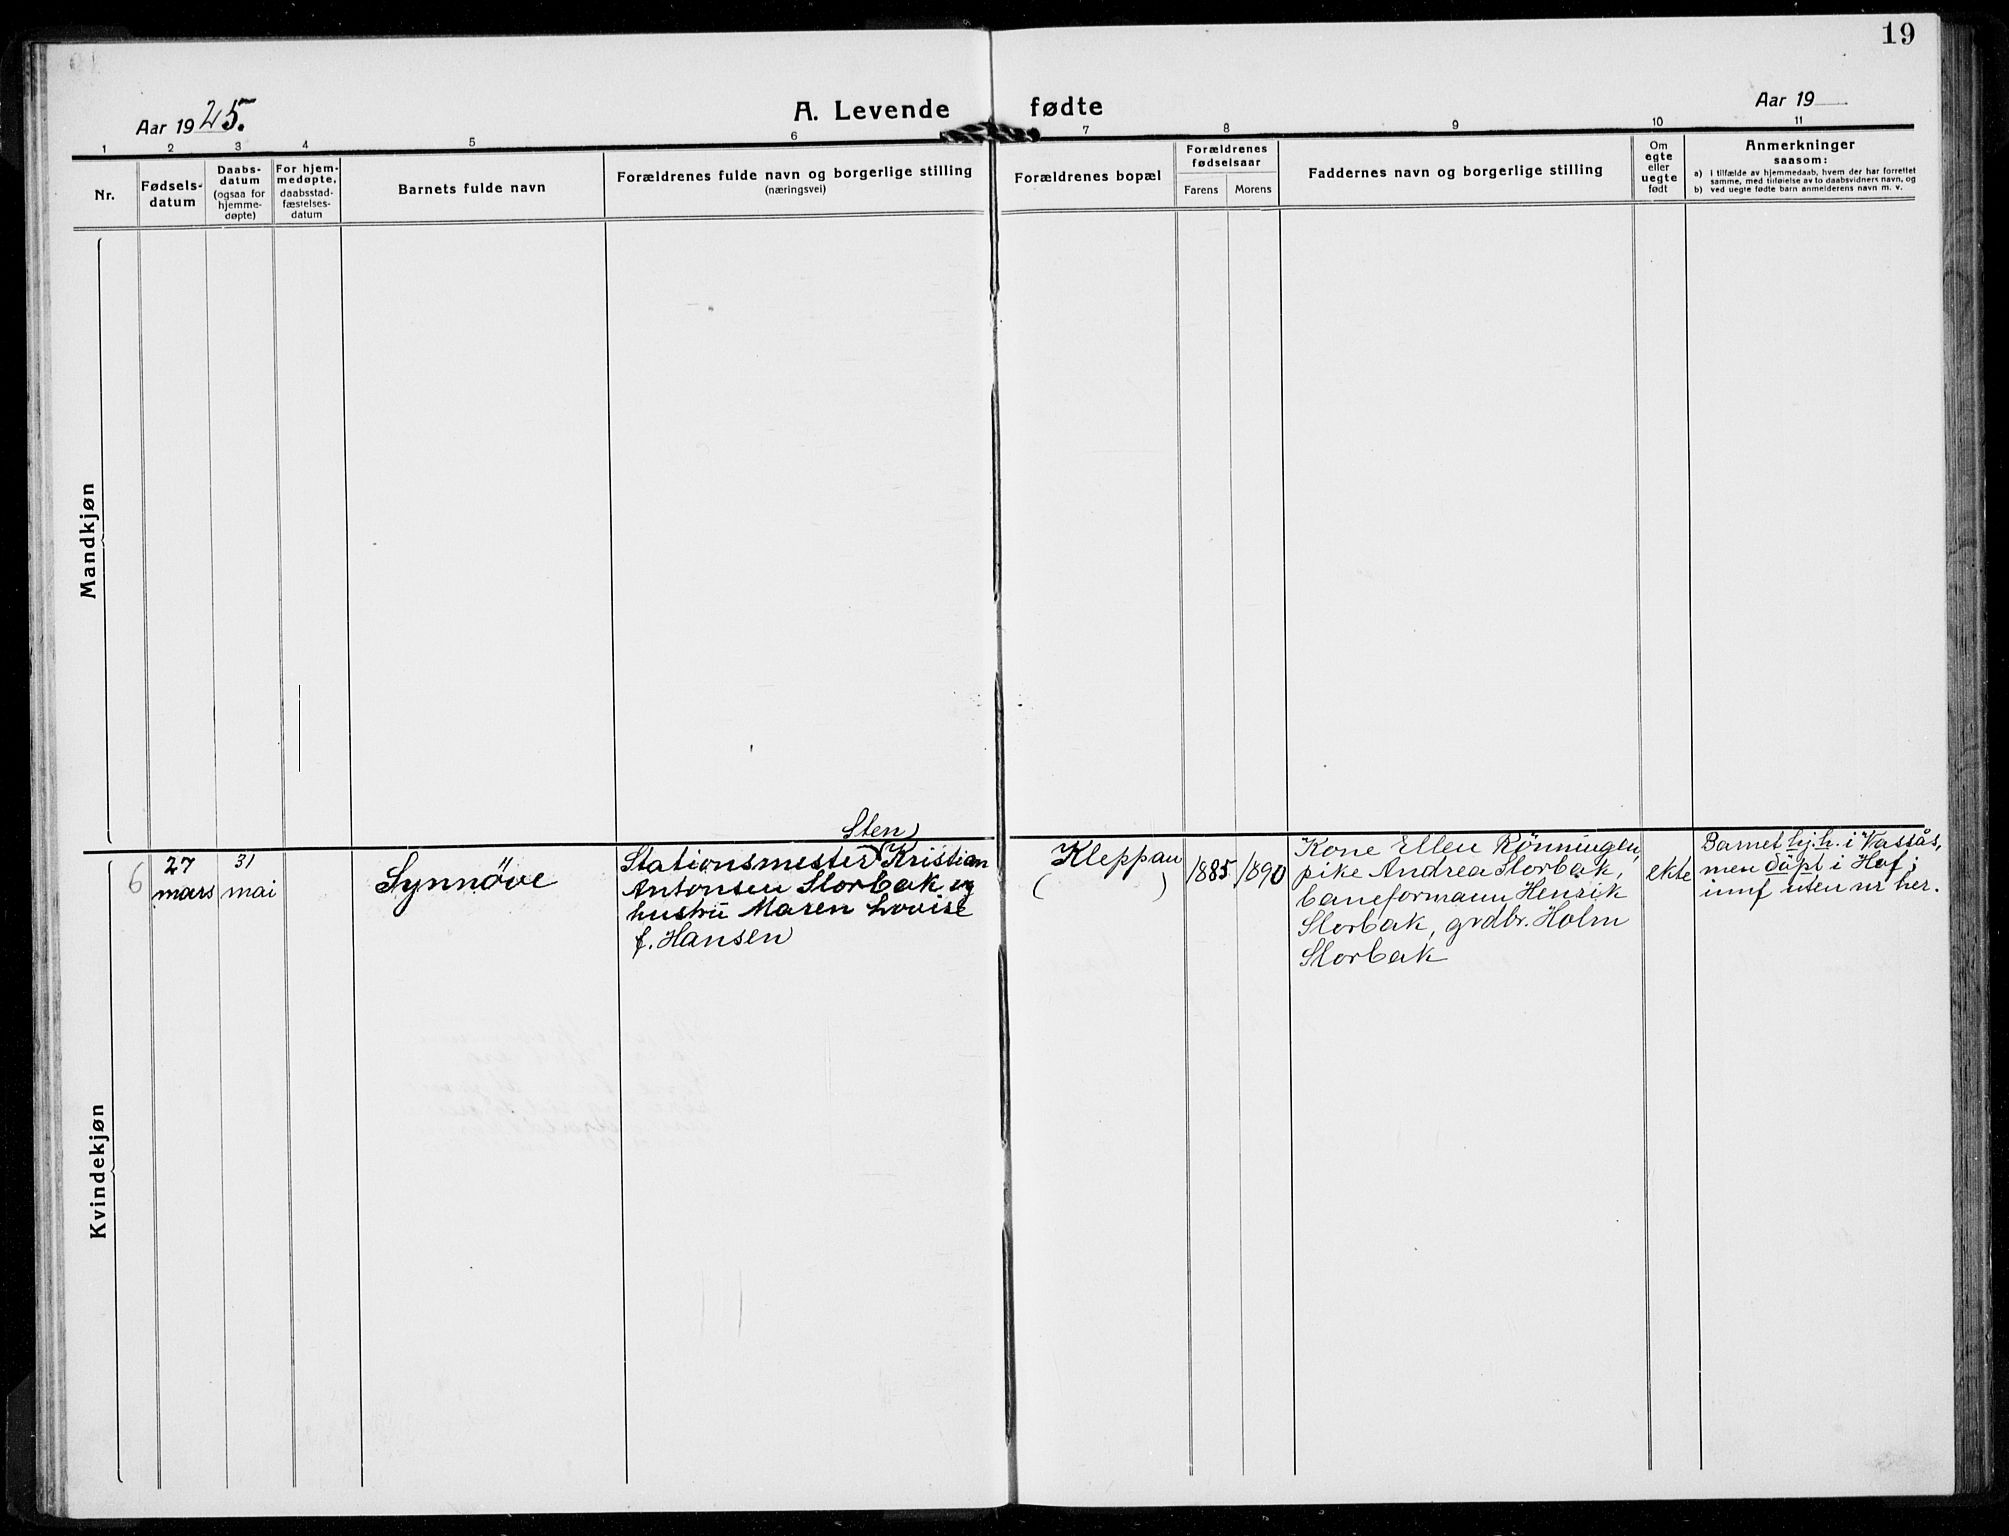 19
Aar 1925.
A. Levende fødte
Aar 19
1 2 3 4 5 6 7 8 9 10 11
Nr.
Fødsels-
datum
Daabs-
datum
(ogsaa for
hjemme-
døpte)
For hjem-
medøpte,
daabsstad-
fæstelses-
datum
Barnets fulde navn
Forældrenes fulde navn og borgerlige stilling
(næringsvei)
Forældrenes bopæl
Forældrenes
fødselsaar
Farens Morens
Faddernes navn og borgerlige stilling
Om
egte
eller
uegte
født
Anmerkninger
saasom:
a) i tilfælde av hjemmedaab, hvem der har forrettet
samme, med tilføielse av to daabsvidners navn, og
b) ved uegte fødte barn anmelderens navn m. v.
Mandkjøn
Kvindekjøn
6
27
mars
31
mai
Synnöve
Sten
Stationsmester Kristian
Antonsen Storbak og
hustru Maren Lovise
f. Hansen
Kleppan
( )
1885
1890
Kone Ellen Rönningen,
pike Andrea Storbak,
baneformann Henrik
Storbak, grdbr. Holm
Storbak
ekte
Barnet hj.h. i Vassås,
men döpt i Hof;
innf uten nr her.